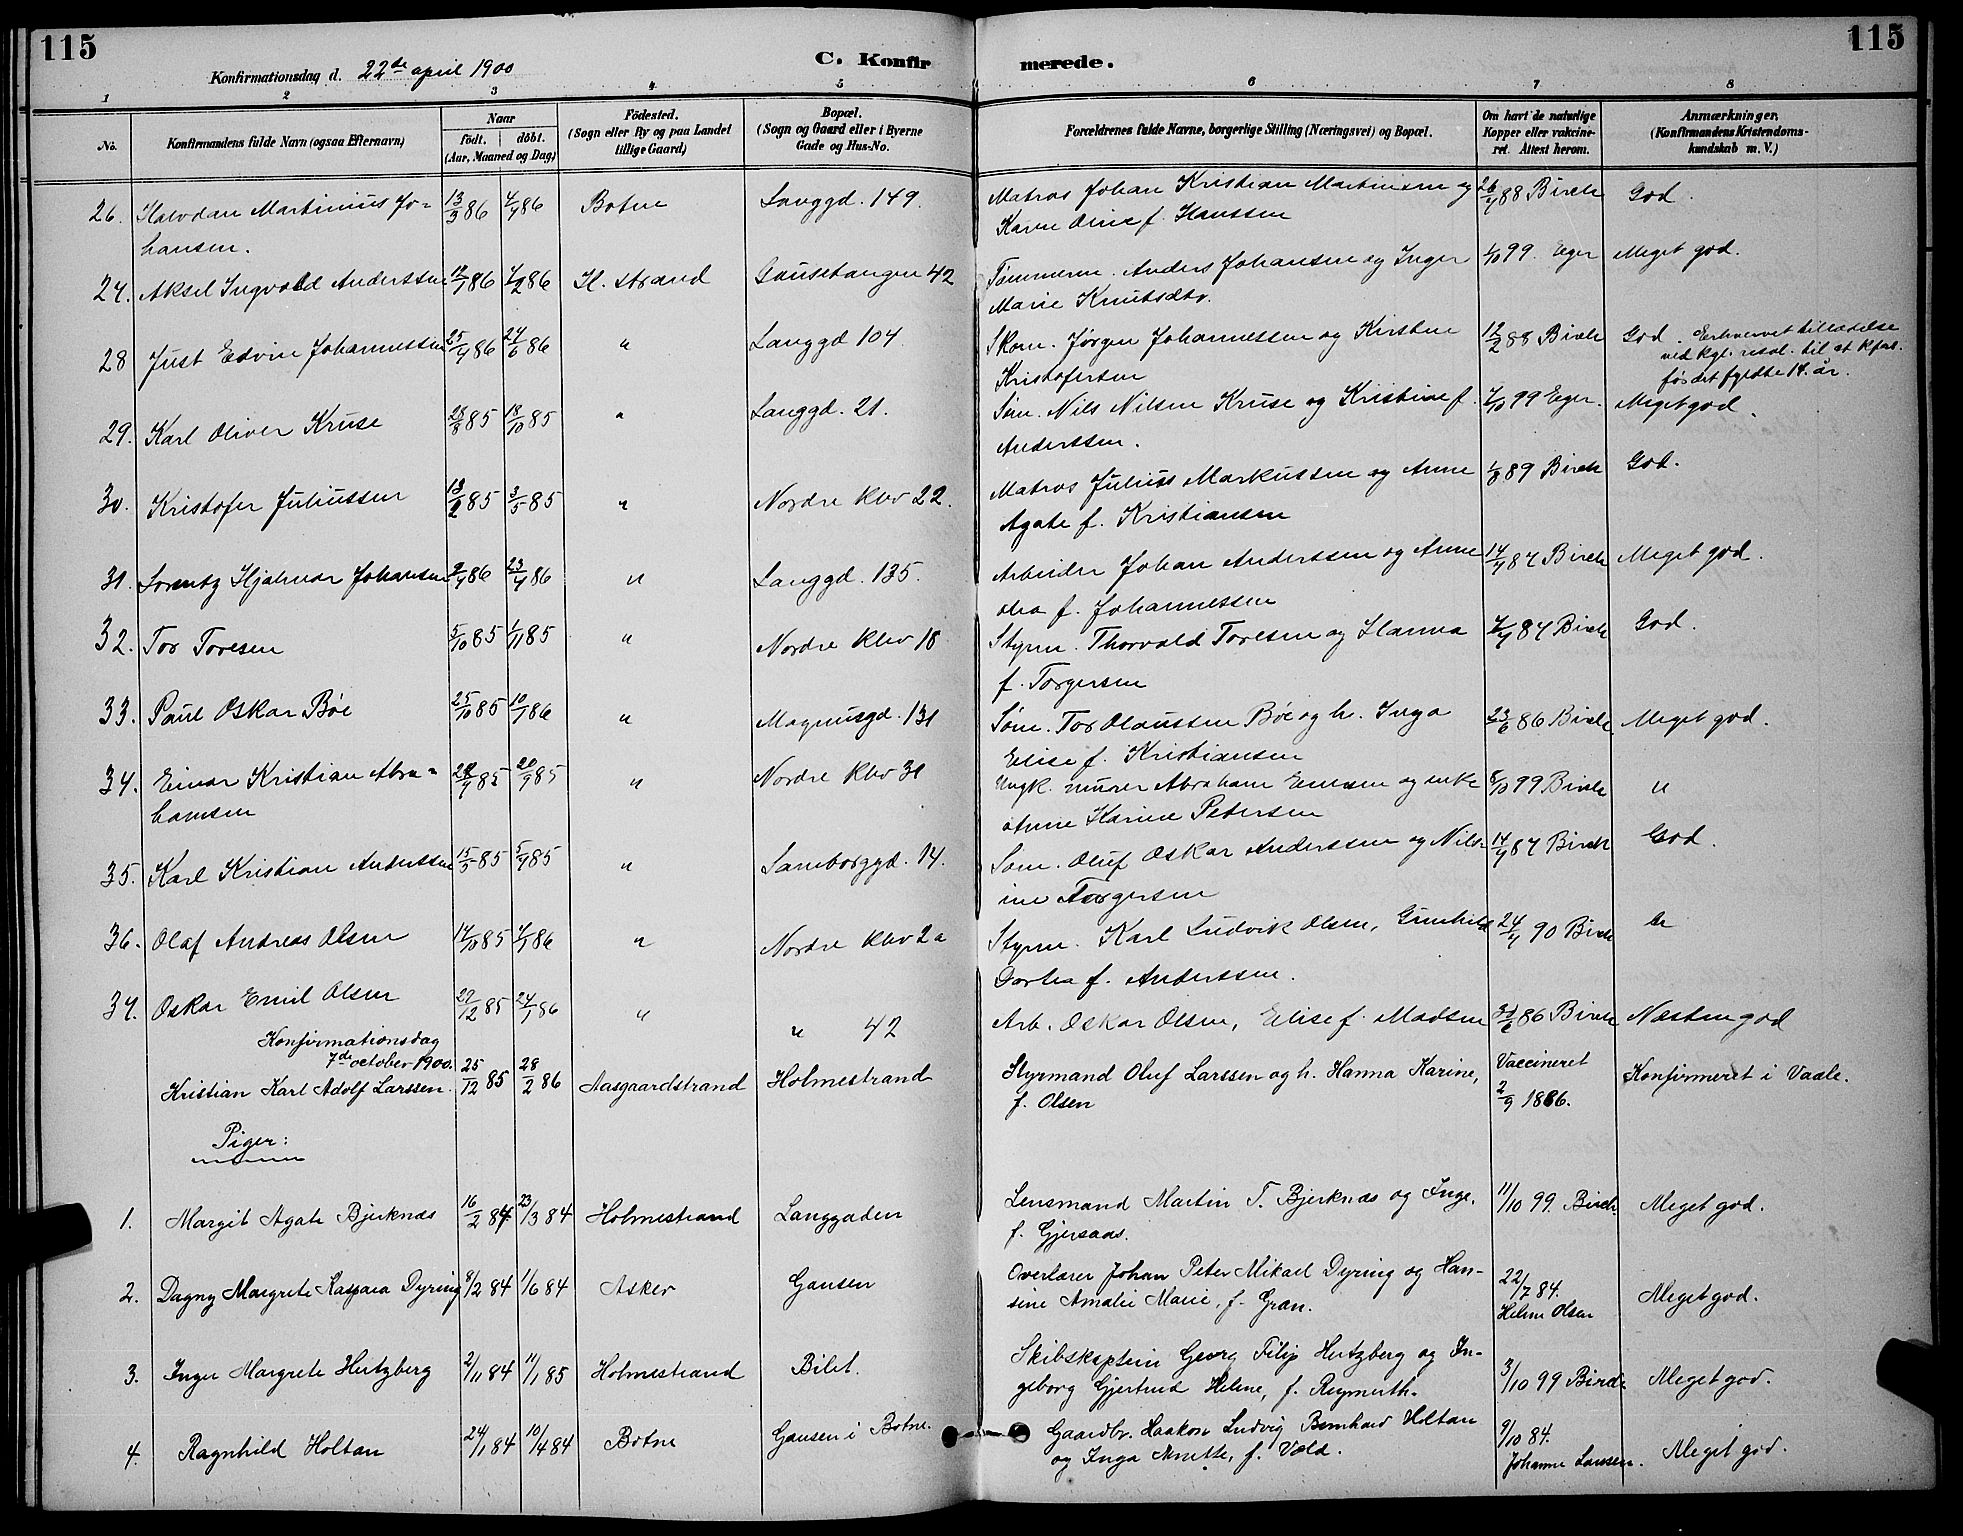 115
115
Konfirmationsdag d. 22de april 1900
C. Konfirmerede.
1 2 3 4 5 6 7 8
No. Konfirmandens fulde Navn (ogsaa Efternavn) Naar født. døbt. (Aar, Maaned og Dag) Fødested. (Sogn eller By og paa Landet tillige Gaard) Bopæl. (Sogn og Gaard eller i Byerne Gade og Hus-No. Forældrenes fulde Navne, borgerlige Stilling (Næringsvei) og Bopæl. Om havt de naturlige Kopper eller vakcineret. Attest herom. Anmærkninger. (Konfirmandens Kristendomskundskab m. V.)
26. Halvdan Martinius Jo= 13/3 86 4/4 86 Botne Langgd. 149. Matros Johan Kristian Martinsen og 26/4 88 Birch God.
hansen. Karen Oline f. Hanssen
27. Aksel Ingvald Anderssen 12/1 86 7/2 86 H. strand Gausetangen 42 Tømmerm. Anders Johansen og Inger 1/10 99. Eger Meget god.
Marie Knutsdtr.
28 Just Edvin Johannessen 25/4 86 27/6 86 " Langgd 104. Skom. Jørgen Johannessen og Kirstine 12/2 88 Birch God. Erhvervet tilladelse
Kristofersen ved kgl. resol. til at kfes.
før det fyldte 14. år.
29. Karl Oliver Kruse 28/8 85 18/10 85 " Langgd. 21. Søm. Nils Nilsen Kruse og Kristine f. 7/10 99 Eger. Meget god.
Anderssen.
30. Kristofer Juliussen 13/2 85 3/5 85 " Nordre khv 22. Matros Julius Markussen og Anne 1/8 89 Birch God.
Agate f. Kristiansen
31. Lorentz Hjalmar Johansen 2/4 86 23/4 86 " Langgd. 135. Arbeider Johan Anderssen og Anne 14/4 87 Birch Meget god.
f. Johannessen
32. Tor Toresen 5/10 85 1/11 85 " Nordre Khv 18 Styrm. Thorvald Toresen og Hanna 87 Birch God.
f. Torgersen
33. Paul Oskar Bøe 25/10 85 10/1 86 " Magnusgd. 131 Søm. Tor Olaussen Bøe og h. Inga 23/6 86 Birch Meget god.
Elise f. Kristiansen
34. Einar Kristian Abra= 85 20/9 85 " Nordre khv 31 Ungk. murer Abraham Enersen og enke 5/10 99 Birch "
hamsen Anne Karine Petersen
35. Karl Kristian Anderssen 15/5 85 5/7 85 " Samborggd. 14. Søm. Oluf Oskar Anderssen og Nils= 14/4 87 Birch God.
ine Torgersen
36. Olaf Andreas Olsen 14/10 85 4/1 86 " Nordre khv 2a Styrm. Karl Ludvik Olsen, Gunhild 24/4 90 Birch "
Dortea f. Anderssen.
37. Oskar Emil Olsen 27/12 85 24/1 86 " " 42 Arb. Oskar Olsen, Elise f. Madsen 86 Birch Næsten god
Konfirmationsdag
7de october 1900.
Kristian Karl Adolf Larssen. 25/12 85 28/2 86 Aasgaardstrand Holmestrand Styrmand Oluf Larssen og h. Hanna Karine, Vaccineret Konfirmeret i Vaale.
f. Olsen 2/9 1886.
Piger:
1. Margit Agate Bjerknæs 16/2 84 23/3 84 Holmestrand Langgaden Lensmand Martin T. Bjerknæs og Inge, 11/10 99. Birch. Meget god.
f. Gjersaas.
2. Dagny Margrete Kaspara Dyring 8/2 84 1/6 84 Asker Gausen Overlærer Johan Peter Mikael Dyring og Han- 22/7 84. Meget god.
sine Amalie Marie, f. Gran. Helene Olsen
3. Inger Margrete Hertzberg 2/11 84 11/1 85 Holmestrand Bilet. Skibskaptein Georg Filip Hertzberg og In- 3/10 99 Birch Meget god.
geborg Gjertrud Helene, f. Reymerth.
4. Ragnhild Holtan 24/1 84 10/4 84 Botne Gausen i Botne. Gaardbr. Haakon Ludvig Bernhard Holtan 9/10 84. Meget god.
og Inga Anette, f. Vold. Johanne Larssen.